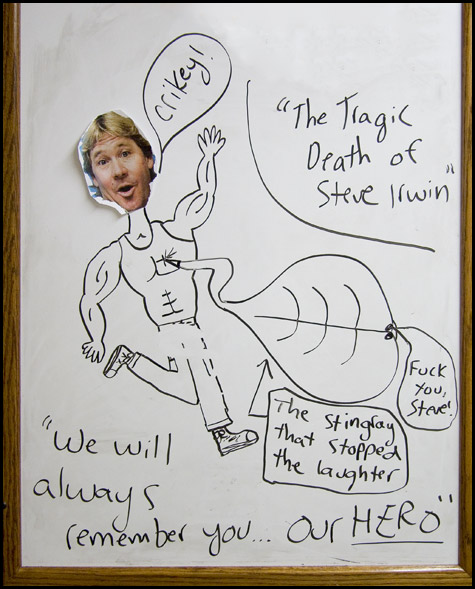 crikey!
"The Tragic
Death of
Steve Irwin"
Fuck
You,
Steve!
The stingray
that stopped
the laughter
"We will
always
remember you... our HERO"